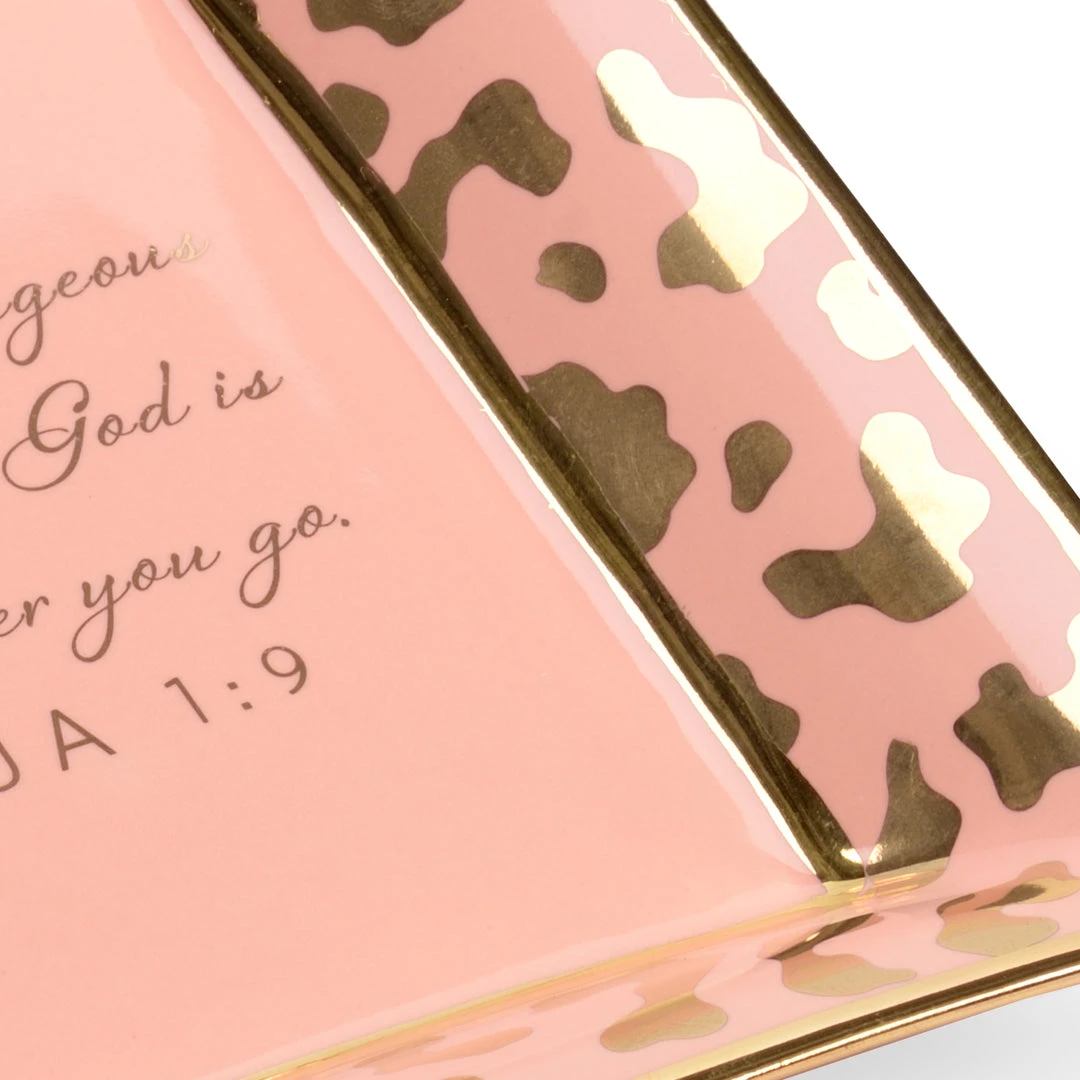 geous
God is
er you go.
JA 1:9